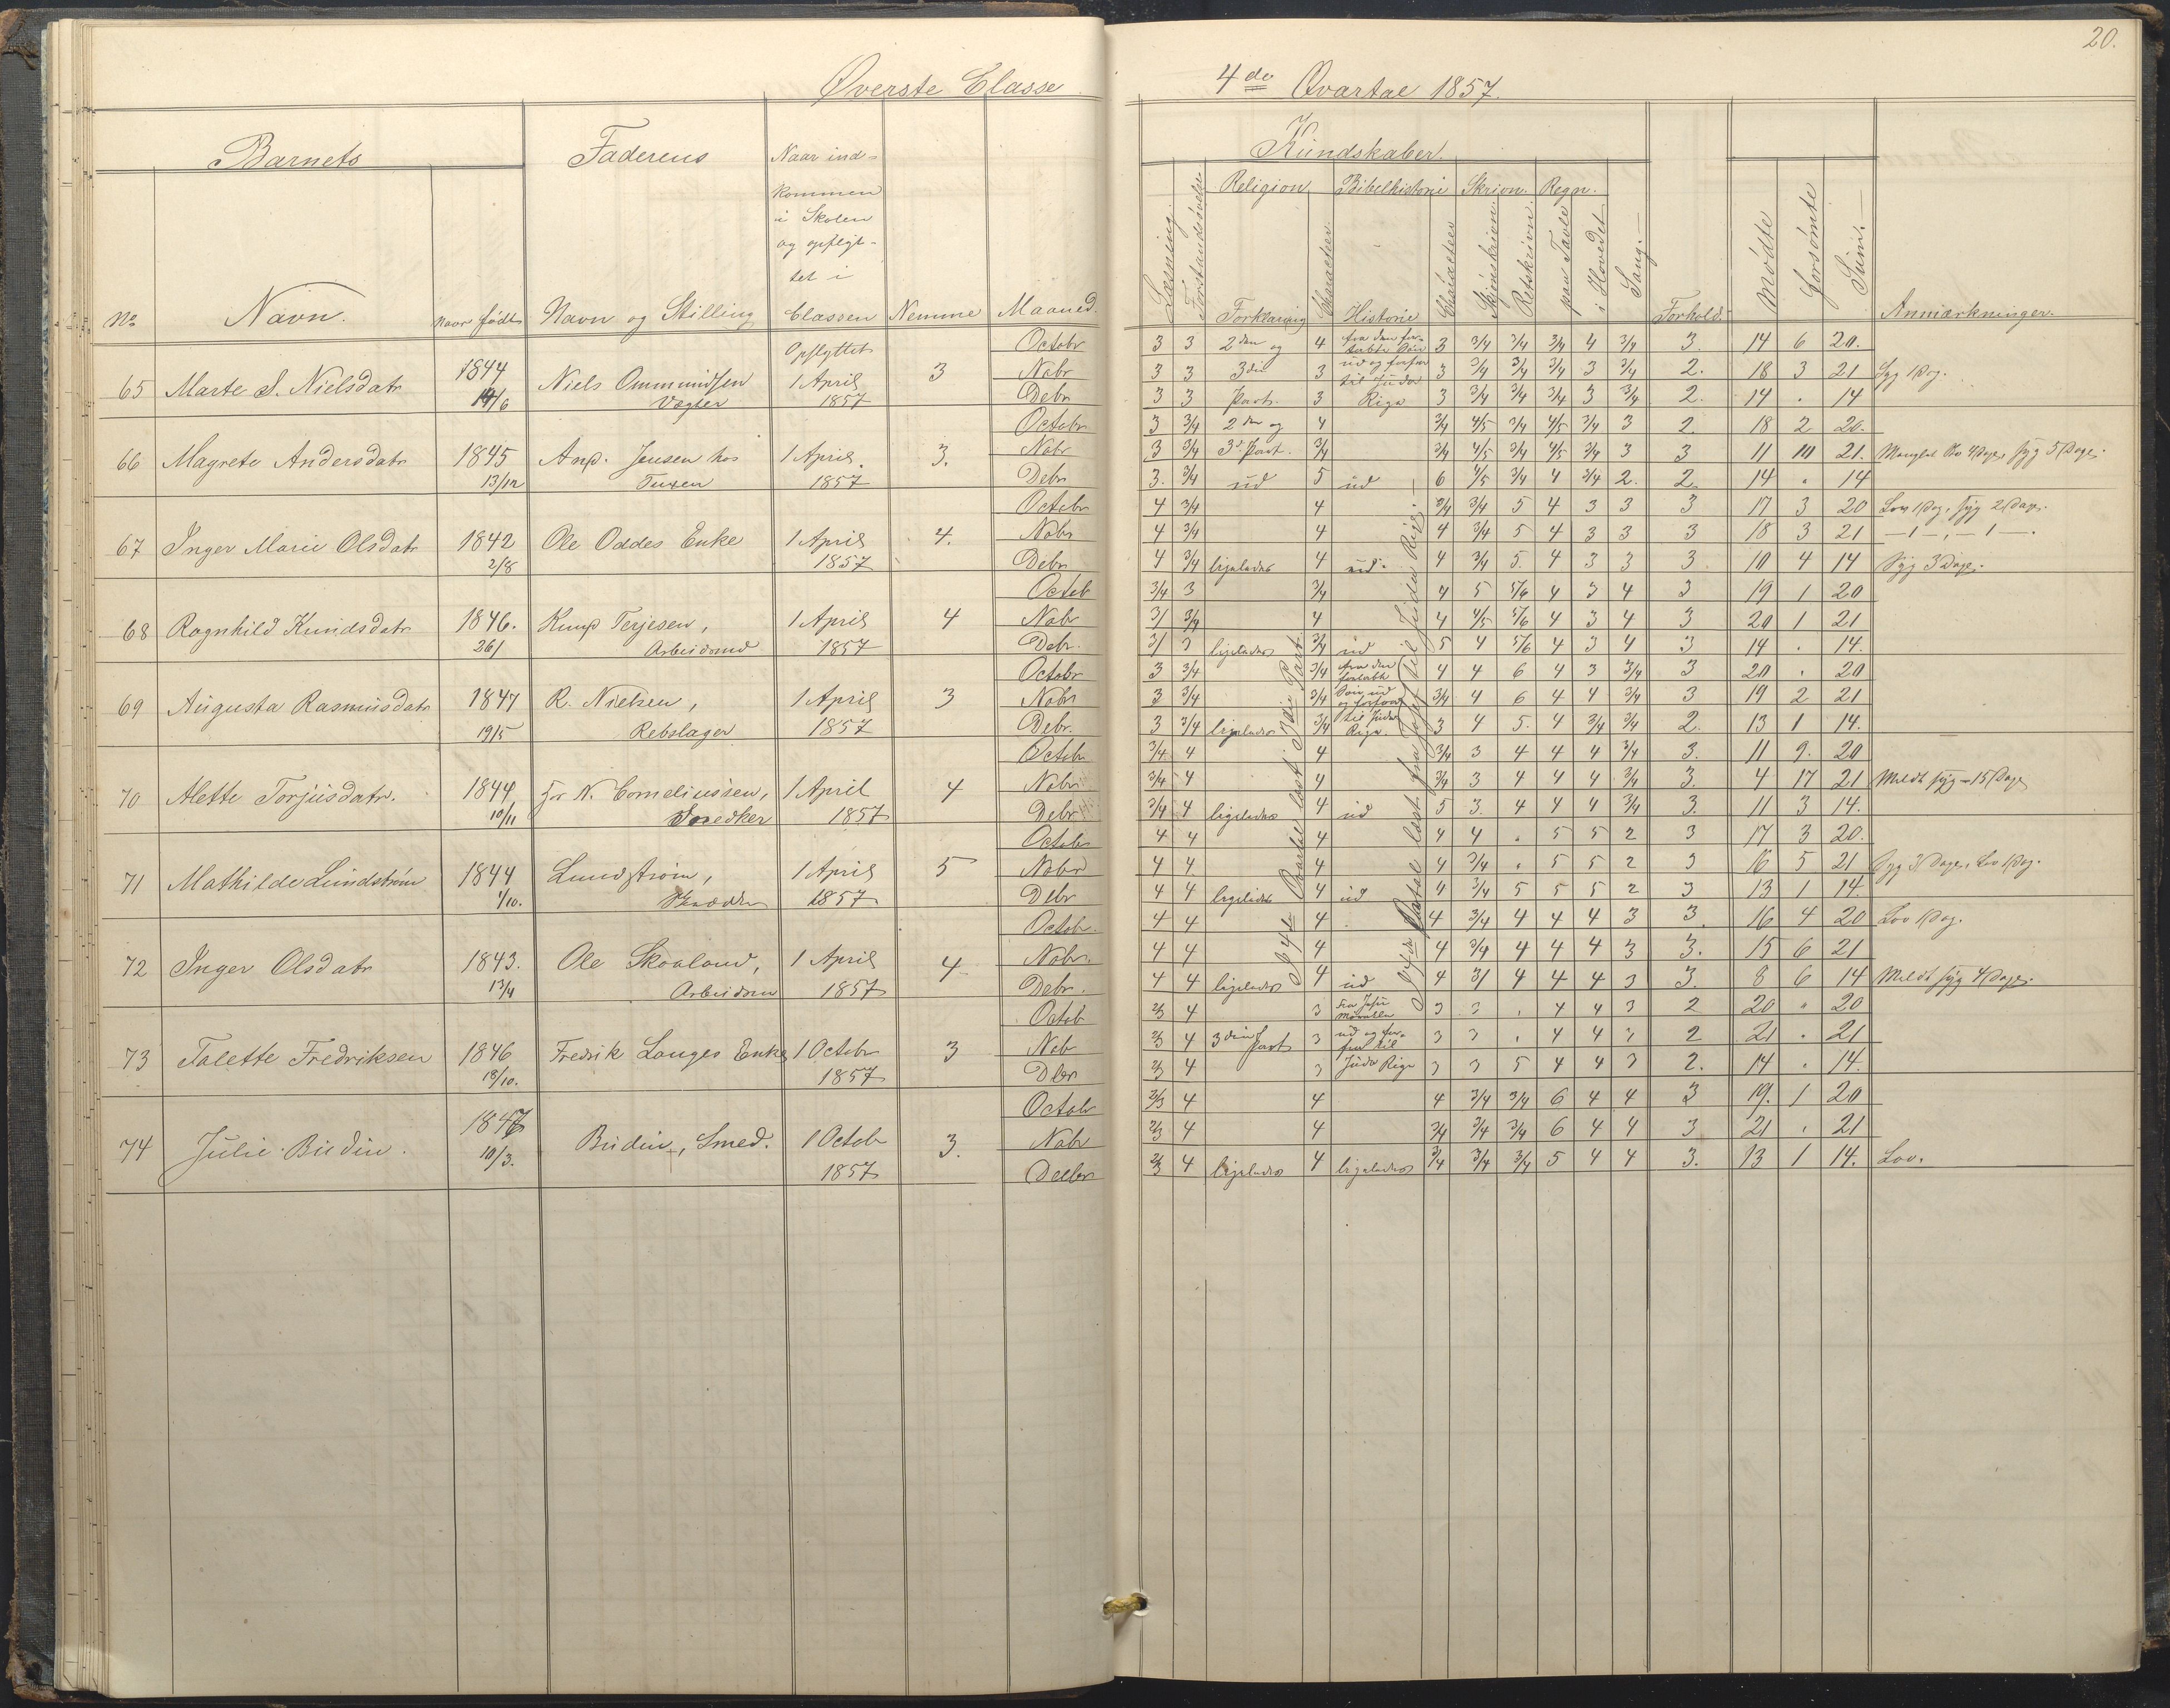 20.
Øverste Classe
4de Qvartal 1857.
Barnets
Faderens
Naar ind-
kommen
i Skolen
og opflyt-
tet i
Classen
No
Navn.
naar født
Navn og Stilling
Nemme
Maaned.
Kundskaber.
Religion
Bibelhistorie
Skrivn.
Regn.
Læsning.
Forstandsøvelse
Forklaring
Character
Historie
Character
Skjønskrivn.
Retskrivn.
paa Tavle
i Hovedet
Sang.
Forhold.
Mødte
Forsømte
Sum.
Anmærkninger.
65 Marte S. Nielsdatr 1844 Niels Ommundsen Opflyttet 3 Octobr 3 3 2den og 4 fra den for- 3 3/4 3/4 3/4 4 3/4 3. 14 6 20.
Vægter 1 April 1857 Nobr 3 3 3die 3 ud og forfra 3 3/4 3/4 3/4 3 3/4 2. 18 3 21 Syg 1 Dag.
Debr 3 3 Part. 3 til Juda Rige 3 3/4 3/4 3/4 3 3/4 2. 14 . 14
66 Magrete Andersdatr 1845 13/12 And. Jensen hos 1 April 1857 3. Octobr 3 3/4 2den og 4 3/4 4/5 3/4 4/5 3/4 3 2. 18 2 20.
Nobr 3 3/4 3d Part. 3/4 3/4 4/5 3/4 4/5 3/4 3 3 11 10 21.
Debr 3. 3/4 ud 5 ud 6 4/5 3/4 4 3/4 2. 2. 14 . 14
67 Inger Marie Olsdatr 1842 2/8 Ole Oddes Enke 1 April 1857 4. Octobr 4 3/4 4 3/4 3/4 5 4 3 3 3 17 3 20 Lov 1 Dag, syg 2 Dage.
Nobr 4 3/4 4 4 3/4 5 4 3 3 3 18 3 21 — 1 —, — 1 —.
Debr 4 3/4 ligeledes 4 ud. 4 3/4 5. 4 3 3 3. 10 4 14 Syg 3 Dage.
68 Ragnhild Knudsdatr 1846. 26/1 Knud Terjesen, Arbeidsmd 1 April 1857 4 Octob 3/4 3 3/4 4 5 5/6 4 3 4 3 19 1 20
Nobr 3/4 4 4 4/5 5/6 4 3 4 3 20 1 21
Debr. 3 ligeledes 3/4 ud 5 4 5/6 4 3 4 3 14 . 14.
69 Augusta Rasmusdatr 1847 19/5 R. Nielsen, Rebslager 1 April 1857 3 Octobr 3 3/4 3/4 fra den fortabte 4 4 6 4 3 3/4 3 20 . 20
Nobr 3 3/4 3/4 Søn ud og forfra 3/4 4 6 4 4 3/4 3 19 2 21
Debr. 3 3/4 ligeledes 3/4 til Juda Rige. 3 4 5. 4 3/4 3/4 2. 13 1 14.
70 Alette Torjusdatr. 1844 10/11 N. Corneliussen, Snedker 1 April 1857 4 Octobr 3/4 4 4 3/4 3 4 4 4 3/4 3. 11 9. 20
Nobr 3/4 4 4 3/4 3 4 4 4 3/4 3. 4 17 21 Meldt syg 15 Dage
Debr 3/4 4 ligeledes 4 ud 5 3. 4 4 4 3/4 3. 11 3 14.
71 Mathilde Lundstrøm 1844 1/10. Lundstrøm, 1 April 1857 5 Octobr 4 4 4 4 4 . 5 5 2 3 17 3 20.
Nobr 4 4 4 4 3/4 . 5 5 2 3 16 5 21 Syg 3 Dage, Lov 1 Dag.
Debr 4 4 ligeledes 4 ud 4 3/4 5 5 5 2 3 13 1 14.
72 Inger Olsdatr 1843. 13/4 Ole Skoaland, Arbeidsm 1 April 1857 4 Octobr. 4 4 4 4 3/4 4 4 4 3 3. 16 4 20 Lov 1 Dag.
Nobr. 4 4 4 4 3/4 4 4 4 3 3. 15 6 21
Debr. 4 4 ligeledes 4 ud 4 4 4 4 3 3. 8 6 14 Meldt syg 4 Dage.
73 Talette Fredriksen 1846 18/10. Fredrik Langes Enke 1 October 1857 3 Octob 2/3 4 3 Fra Jesu 3 3 . 4 4 3 2 20 . 20
Nob 2/3 4 3die Part 3 ud og for- 3 3 . 4 4 3 2 21 . 21
Dbr 2/3 4 3 Juda Rige 3 3 5 4 4 3 2. 14 . 14.
74 Julie Budin. 1847 10/3. Budin, Smed. 1 Octob 1857 3. Octobr 2/3 4 4 4 3/4 3/4 6 4 4 3 19. 1 20
Nobr 2/3 4 4 3/4 3/4 3/4 6 4 4 3 21 . 21
Decbr 2/3 4 ligeledes 4 ligeledes 3/4 3/4 3/4 5 4 4 3. 13 1 14. Lov.
I 4de Qvartal læst 3die Part.
I 4de Qvartal læst fra Josef til Juda Rige.